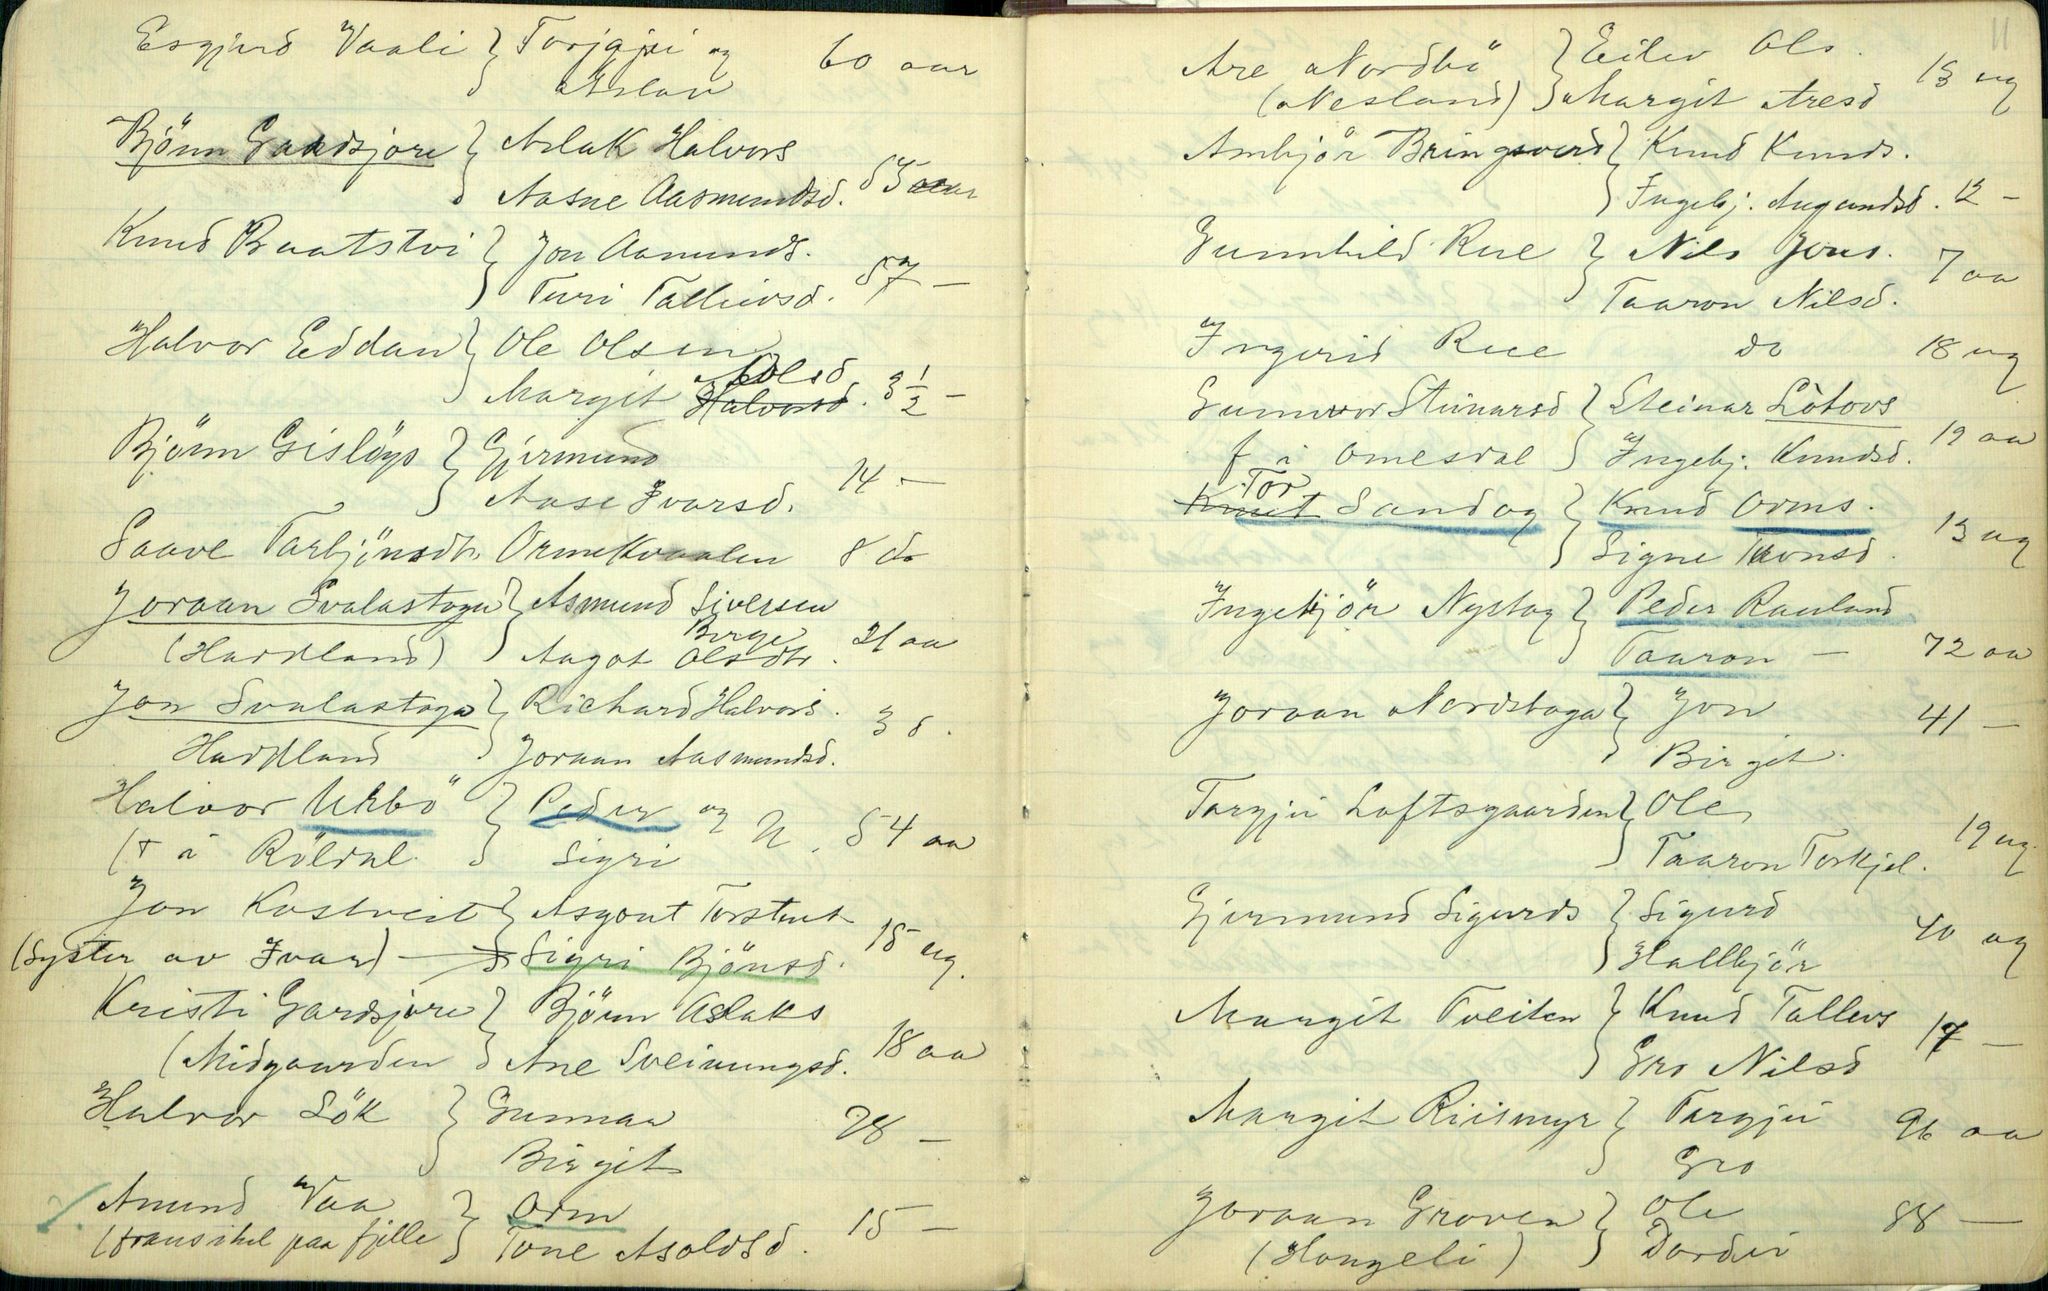 Esgjerd Vaali } Torjgjei og 60 aar
Aslau
Bjönn Gardsjore } Aslak Halvors
Aasne Aasmundsd. 53 aar
Knud Baatstvi } Jon Aamunds.
Turi Talleivsd. 57 —
Halvor Eddan } Ole Olsen
Aaolsd
Margit Halvorsd. 3 1/2 —
Bjönn Gislöys } Gjermund
Aase Ivarsd. 14 —
Saave Tarbjönsdtr. Ormekvaalen 8 do
Joraan Svalastoga } Asmund Siversen
Berge
(Hardland) Aagot Olsdtr. 21 aa
Jon Svalastoga } Richard Halvors. 38.
Hardland Joraan Aasmundsd.
Halvor Urbö } Peder og N. 54 aa
(† i Röldal. Sigri
Jon Kostveit } Asgout Torsteit 15 ug.
(Syster av Ivar) — Sigri Bjönsd.
Kristi Gardsjore } Björn Aslaks
(Midgaarden Ane Sveinungsd. 18 aa
Halvor Lök } Gunnar 78 —
Birgit
Amund Vaa } Orm 15 —
(fraus ihel paa fjille Tone Asoldsd.
11
Are Nordbö } Eilev Ols. 13 ug
(Nesland) Margit Aresd
Ambjör Bringsverd } Knud Knuds.
Ingebj. Augundsd. 12 —
Gunnhild Rue } Nils Jons. 7 aa
Taaron Nilsd.
Ingerid Rue do 18 ug
Gunnvor Steinarsd } Steinar Lötovs 19 aa
f i Omesdal Ingebj. Knudsd.
Tor
Knut Sandog } Knud Orms. 13 ug
Signe Tronsd.
Ingebjör Nystog } Peder Rauland
Taaron — 72 aa
Joraan Nordstoga } Jon 41 —
Birgit.
Targjei Loftsgaarden } Ole 19 ug.
Taaron Torkjel.
Gjermund Sigurds } Sigurd 40 ug
Hallbjör
Margit Tveiten } Knud Tallevs 17 —
Gro Nilsd
Margit Riismyr } Targjei 96 aa
Gro
Joraan Groven } Ole 88 —
(Hongeli) Dordei